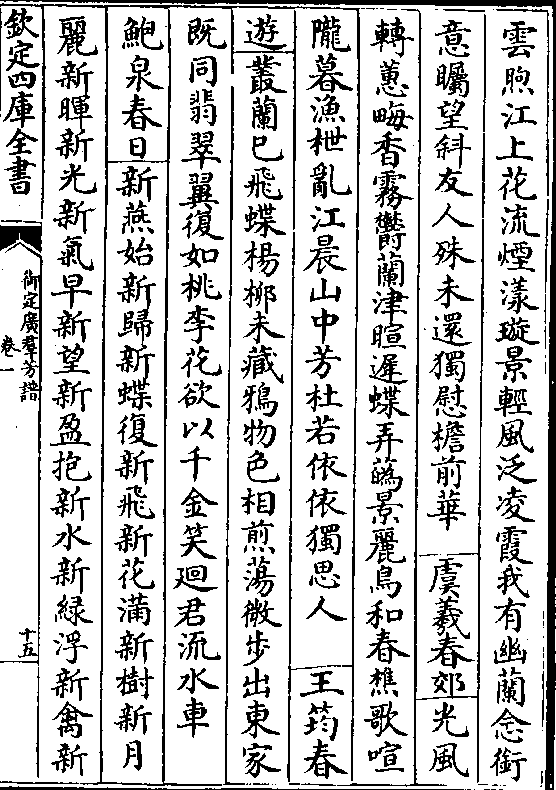 雲煦江上花流煙漾璇景輕風泛凌霞我有幽蘭念銜
意矚望斜友人殊未還獨慰檐前華　虞羲春郊光風
轉蕙畹香霧鬱蘭津暄遲蝶弄蘤景麗鳥和春樵歌喧
隴暮漁枻亂江晨山中芳杜若依依獨思人　王筠春
遊叢蘭已飛蝶楊柳未藏鴉物色相煎蕩微步出東家
既同翡翠翼復如桃李花欲以千金笑迴君流水車
鮑泉春日新燕始新歸新蝶復新飛新花滿新樹新月
麗新暉新光新氣早新望新盈抱新水新緑浮新禽新
欽定四庫全書
御定廣羣芳譜
卷一
十五